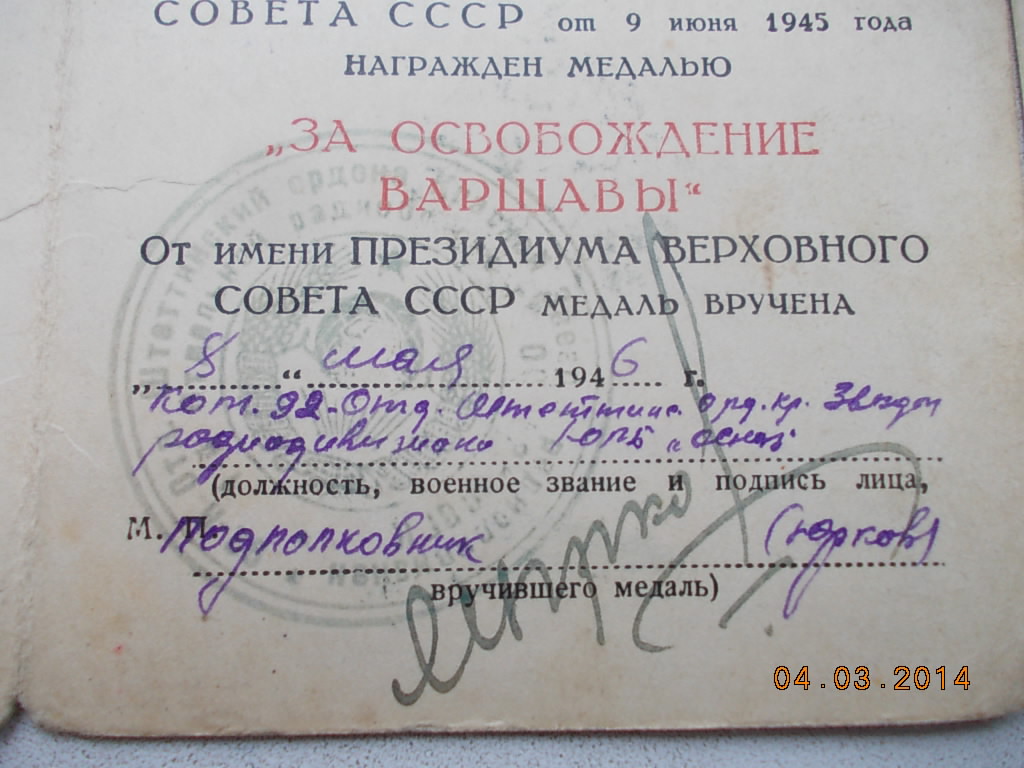 СОВЕТА СССР от 9 июня 1945 года
НАГРАЖДЕН МЕДАЛЬЮ
„ЗА ОСВОБОЖДЕНИЕ
ВАРШАВЫ“
От имени ПРЕЗИДИУМА ВЕРХОВНОГО
СОВЕТА СССР МЕДАЛЬ ВРУЧЕНА
„8“ мая 1946 г.
Ком. 92 Отд. орд. кр. Звезды
радиодивизиона „осназ“
(должность, военное звание и подпись лица,
М. П. Подполковник (Юрков)
вручившего медаль)
04.03.2014